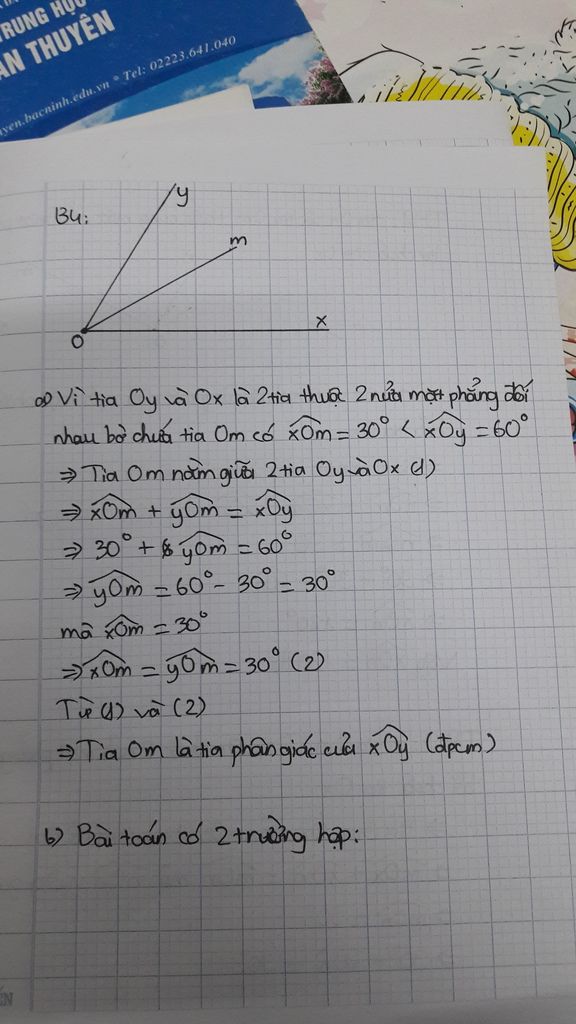 TRUNG HỌC
AN THUYÊN
yen.bacninh.edu.vn * Tel: 02223.641.040
B4:
y
m
x
O
a) Vì tia Oy và Ox là 2 tia thuộc 2 nửa mặt phẳng đối
nhau bờ chứa tia Om có xOm = 30° < xOy = 60°
⇒ Tia Om nằm giữa 2 tia Oy và Ox (1)
⇒ xOm + yOm = xOy
⇒ 30° + yOm = 60°
⇒ yOm = 60° - 30° = 30°
mà xOm = 30°
⇒ xOm = yOm = 30° (2)
Từ (1) và (2)
⇒ Tia Om là tia phân giác của xOy (đpcm)
b) Bài toán có 2 trường hợp: